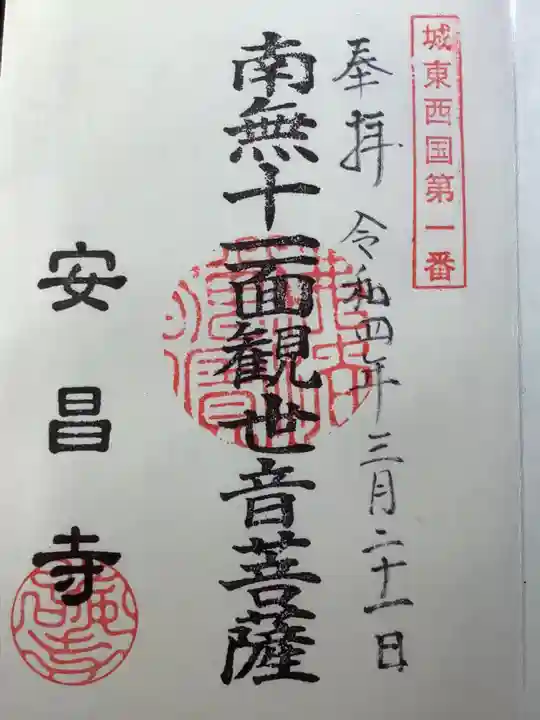 城東西国第一番
奉拝 令和四年三月二十一日
南無十一面観世音菩薩
安昌寺